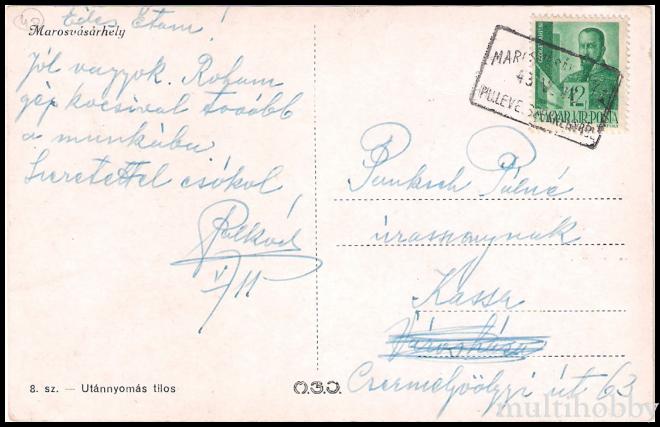 42
Édes Etám!
Marosvásárhely
Jól vagyok. Roham
gép kocsival tovább
a munkába
Szeretettel csókol
Palkód
V/11
8. sz. — Utánnyomás tilos
12
MAGYAR KIR. POSTA
43
Punksch Pálné
úrasszonynak
Kassa
Csermelyvölgyi út 63
multihobby